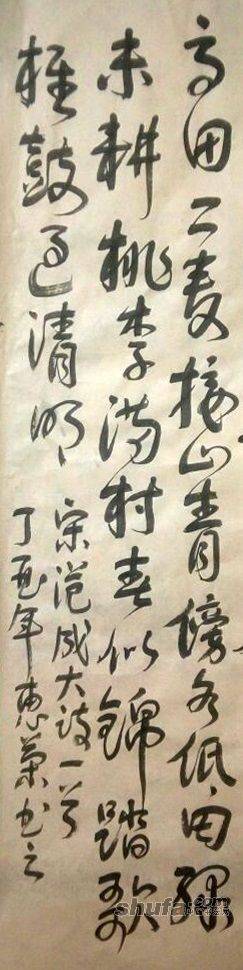 高田二麦接山青傍水低田绿
未耕桃李满村春似锦踏歌
椎鼓过清明
宋范成大诗一首
丁酉年惠书之